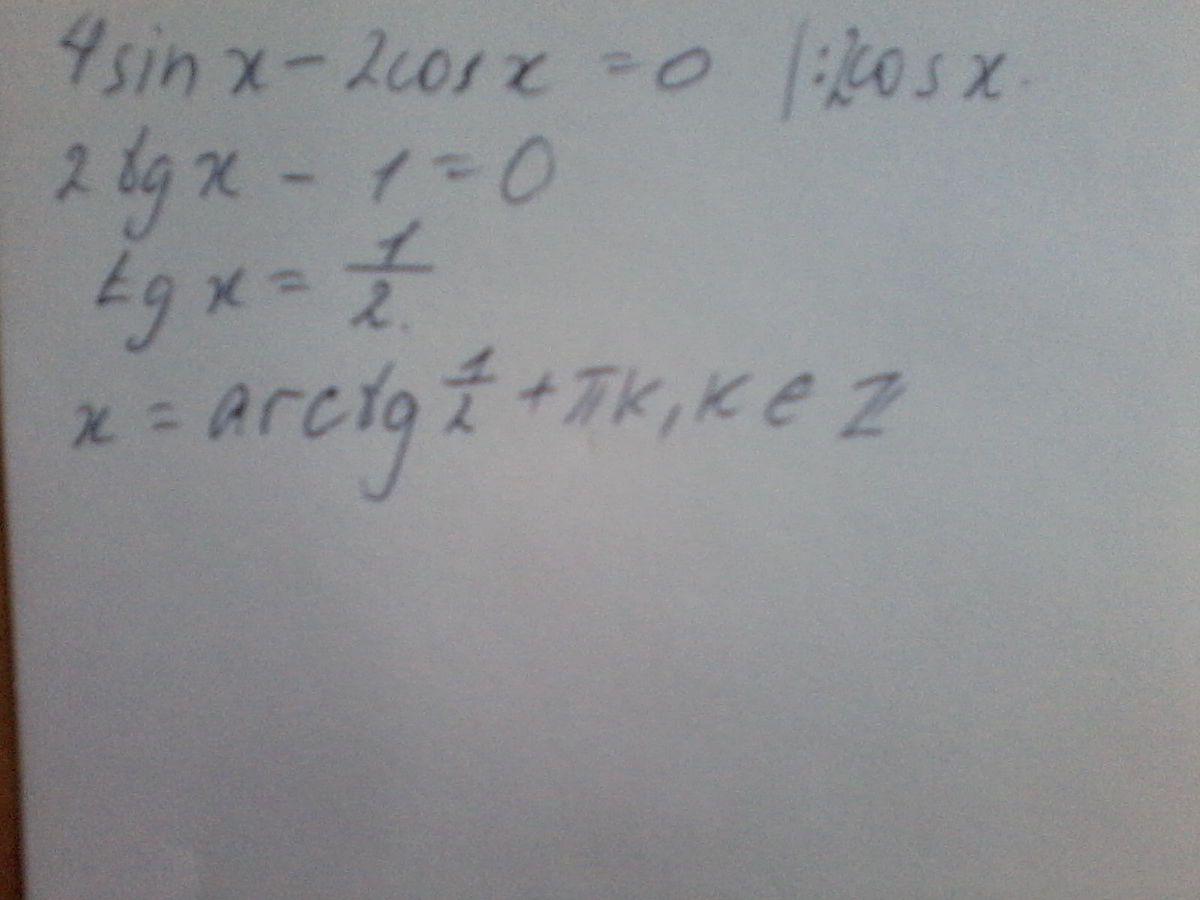 4sin x - 2cos x = 0 |:2cos x.
2 tg x - 1 = 0
tg x = 1/2.
x = arctg 1/2 + πk, k ∈ Z